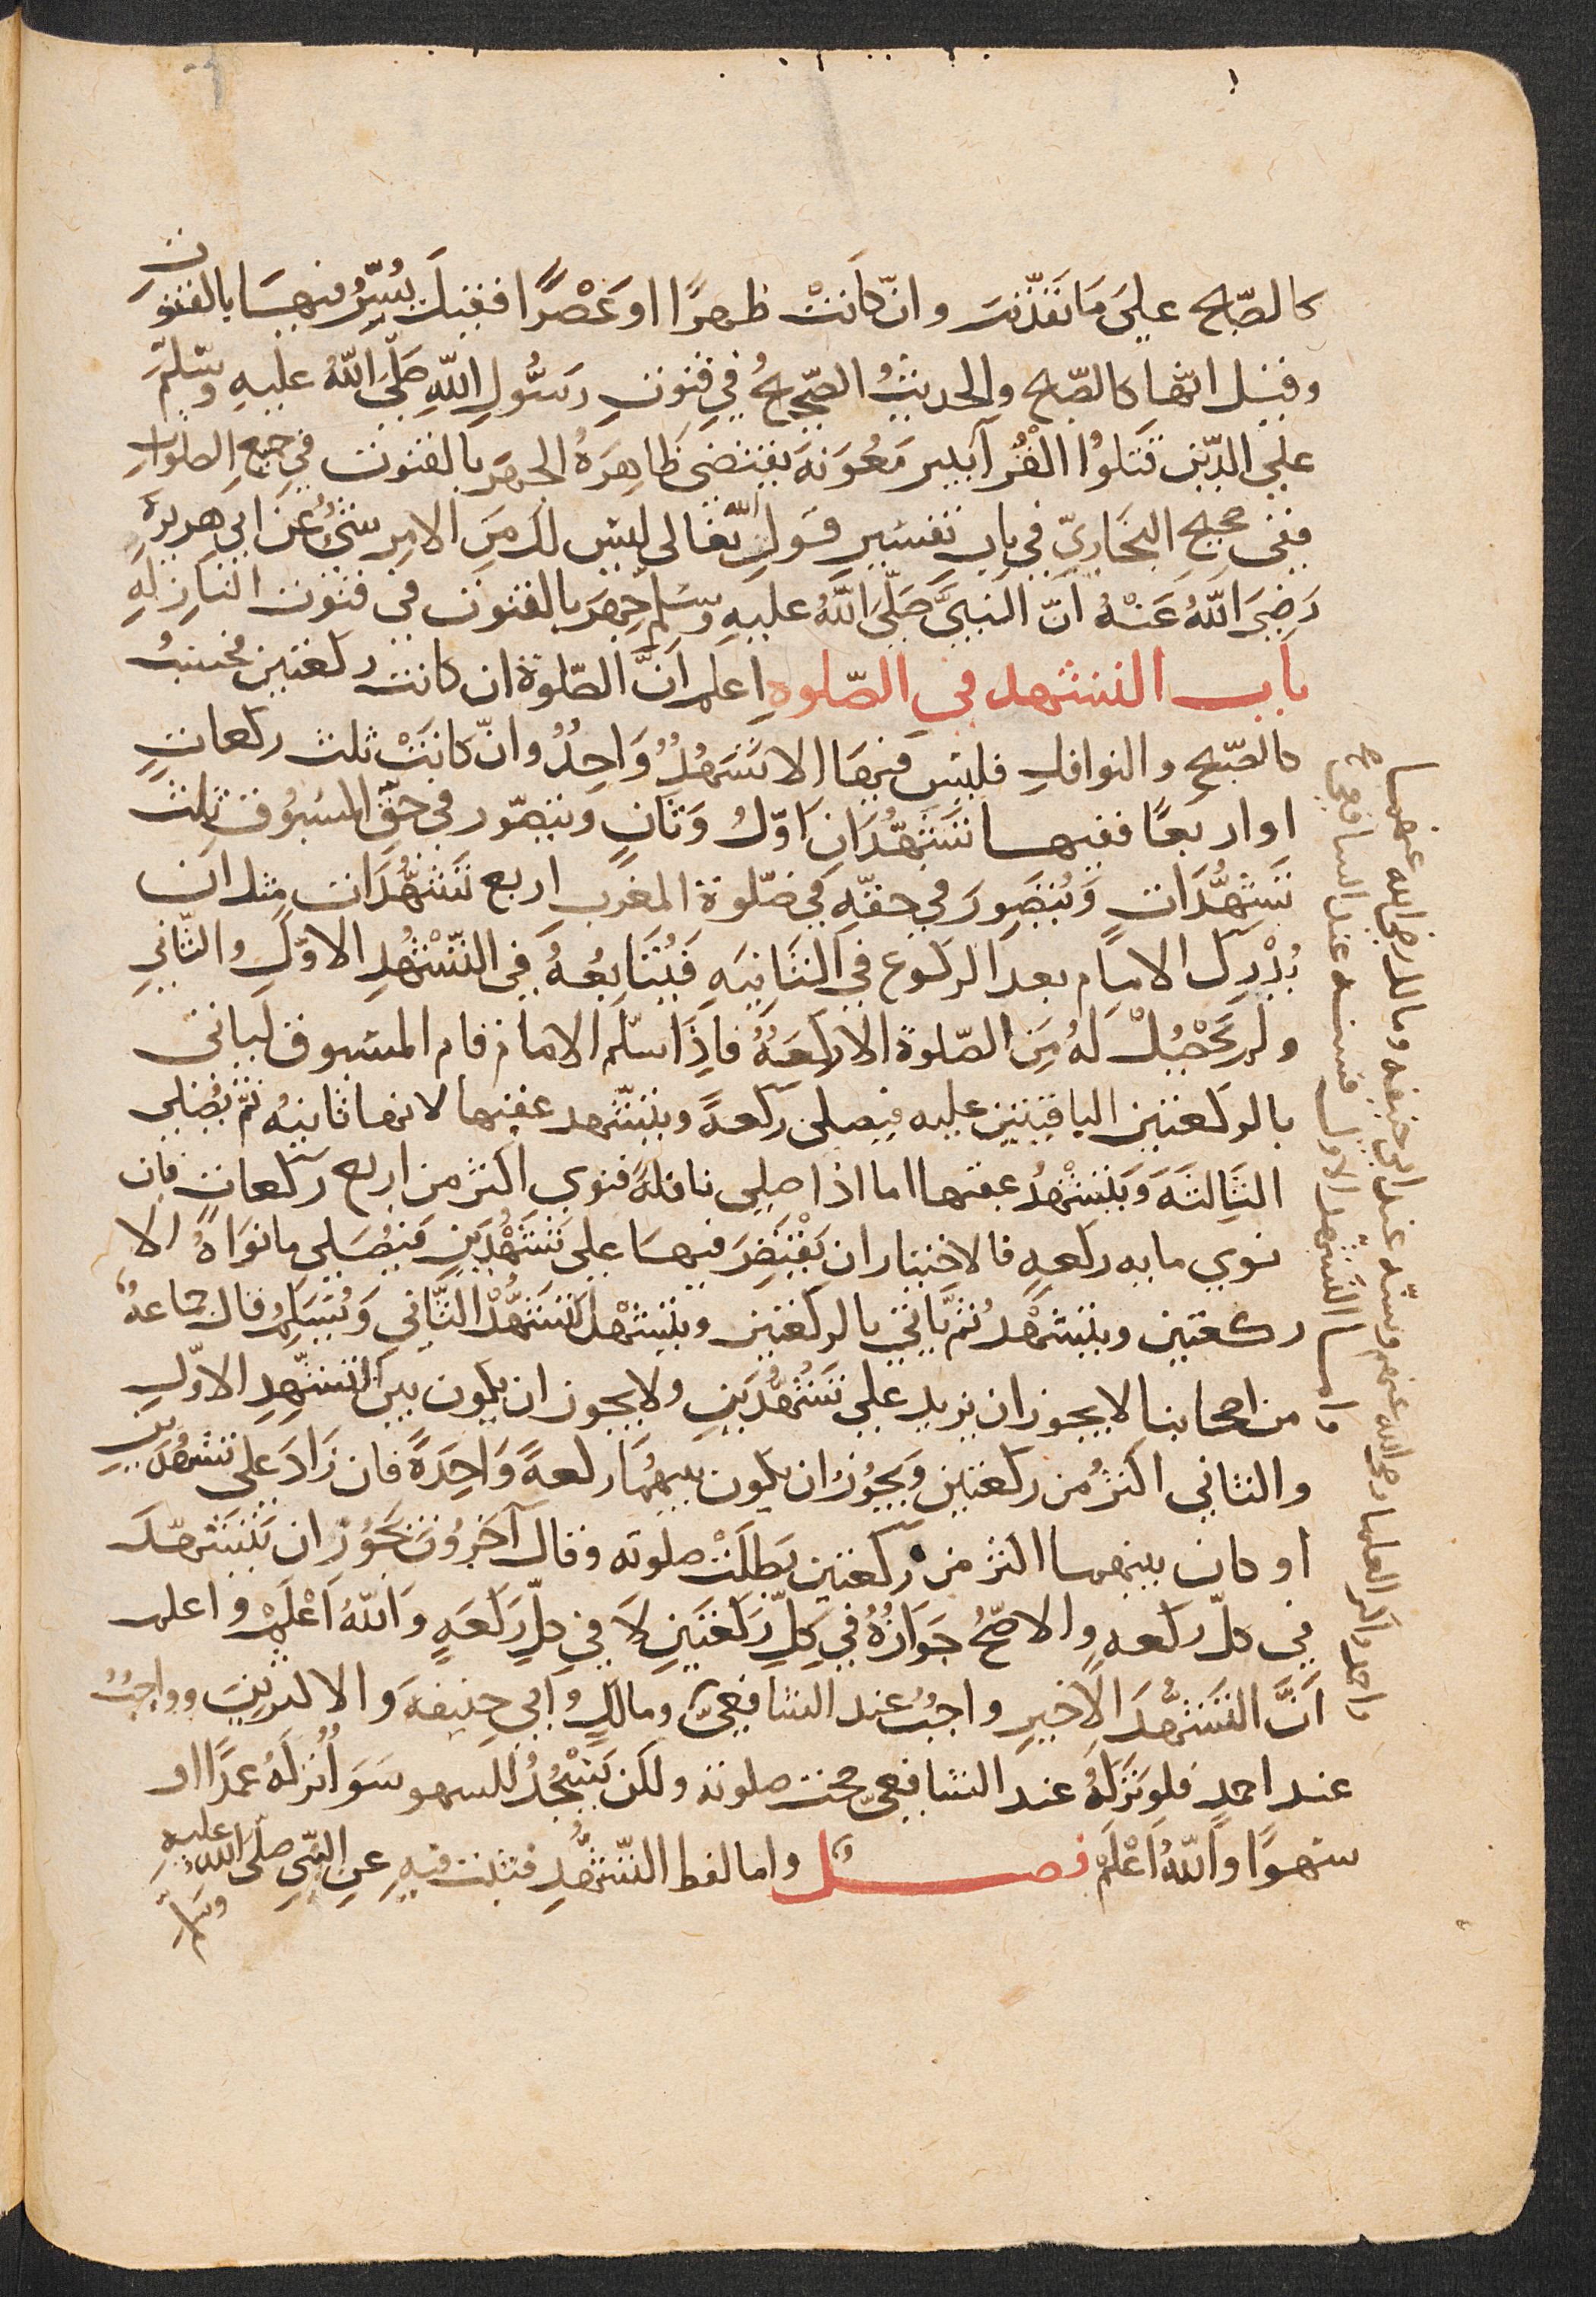 كالصّبح علي ما تقدّمت وان كانت ظهرًا او عصرًا فقيل يُسِرُّ فيها بالقنوت
وقيل انّها كالصّبح والحديث الصّحيحُ في قنوتِ رَسُولِ اللهِ صَلَّى اللهُ عليهِ وسَلّم
علي الذين قَتَلُوا القُرّآ ببير مَعُونَةَ يقتضي ظاهِرُهُ الجهرَ بالقنوت في جميعِ الصلواتِ
ففي صحيحِ البخاريّ في بابِ تفسيرِ قولِ اللهِ تعالى ليس لك مِنَ الامرِ شَيْءٌ عَنْ ابي هريرةَ
رَضِيَ اللهُ عَنْهُ انّ النبيَّ صَلّى اللهُ عليهِ وسَلم جهرَ بالقنوت في قنوت النازلةِ
باب التشهد في الصّلوة اعلم انَّ الصّلوة ان كانت ركعتين فحسبُ
كالصّبحِ والنوافلِ فليس فيها الا تشهدٌ وَاحِدٌ وان كانَتْ ثلث ركعاتٍ
او اربعًا ففيها تشهُّدَانِ اوّلُ وَثانٍ ويتصوّر في حقِّ المسبُوقِ ثلثُ
تشهُّدَاتٍ وَيُتصَوّر في حقّهِ في صلوة المغرب اربع تشهُّدَات مثل ان
يُدْرِك الامام بعد الركوع في الثانيةِ فيُتَابِعُهُ في التّشهُّدِ الاوّلِ والثّاني
ولم يَحْصُلْ لَهُ مِنَ الصّلوة الا ركعَةٌ فاذا سلّم الامام قام المسبوق ليأتى
بالركعتين الباقيتين عليه فيصلى ركعةً ويتشهد عقيبها لانها ثانيةٌ ثم يُصلى
الثالثَةَ ويتشهدُ عقبها اما اذا صلى نافلةً فنوى اكثر من اربع ركعاتٍ فان
نوي مايه ركعةٍ فالاختيار ان يَقْتصِرَ فيها علي تشهُّدَينِ فيُصَلي ما نواهُ الا
ركعتين ويتشهدُ ثمّ يأتي بالركعتين ويتشهد التشهُّد الثّاني وَيُسَلّمُ قال جماعةٌ
من اصحابنا لا يجوز ان يزيد علي تشهُّدَين ولا يجوز ان يكون بين التّشهّدِ الاوّلِ
والثاني اكثرُ من ركعتين ويجُوزُ ان يكون بينهُما ركعةٌ وَاحِدَةٌ فان زَادَ على تشهُّدَينِ
او كان بينهما اكثر من ركعتين بَطلَتْ صلوته وقال آخَرُونَ يجُوزُ ان يتشهّد
في كلّ ركعه والاصحُّ جَوازُهُ في كلِّ ركعتَينِ لا في كلّ ركعةٍ واللهُ اعْلَمُ واعلم
انَّ التّشهُّدَ الاخيرِ واجبٌ عند الشافعيّ ومالكٍ وابي حنيفةَ والاكثرينَ وواجبٌ
عند احمد فلو تركهُ عند الشافعي صحّت صلوته ولكن يَسْجُدُ للسهو سَوَا تركهُ عمدًا او
سَهوًا واللهُ اعْلَم فصل واما لفظ التّشهُّدِ فثبت فيهِ عن النبي صلى الله عليهِ
وسلم
واما التشهد الاول فسنة عند الشافعي
واحمد واكثر العلما رضي الله عنهم وسنة عند ابي حنيفه ومالك رضي الله عنهما